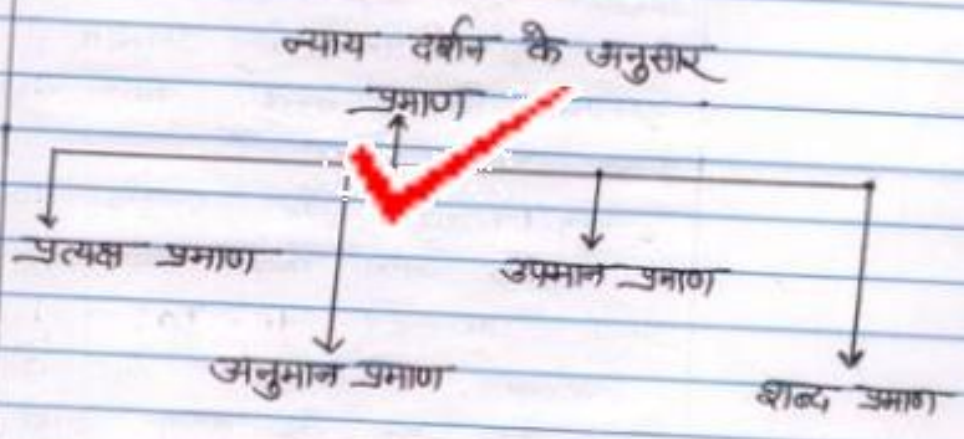 न्याय दर्शन के अनुसार
प्रमाण
प्रत्यक्ष प्रमाण
उपमान प्रमाण
अनुमान प्रमाण
शब्द प्रमाण